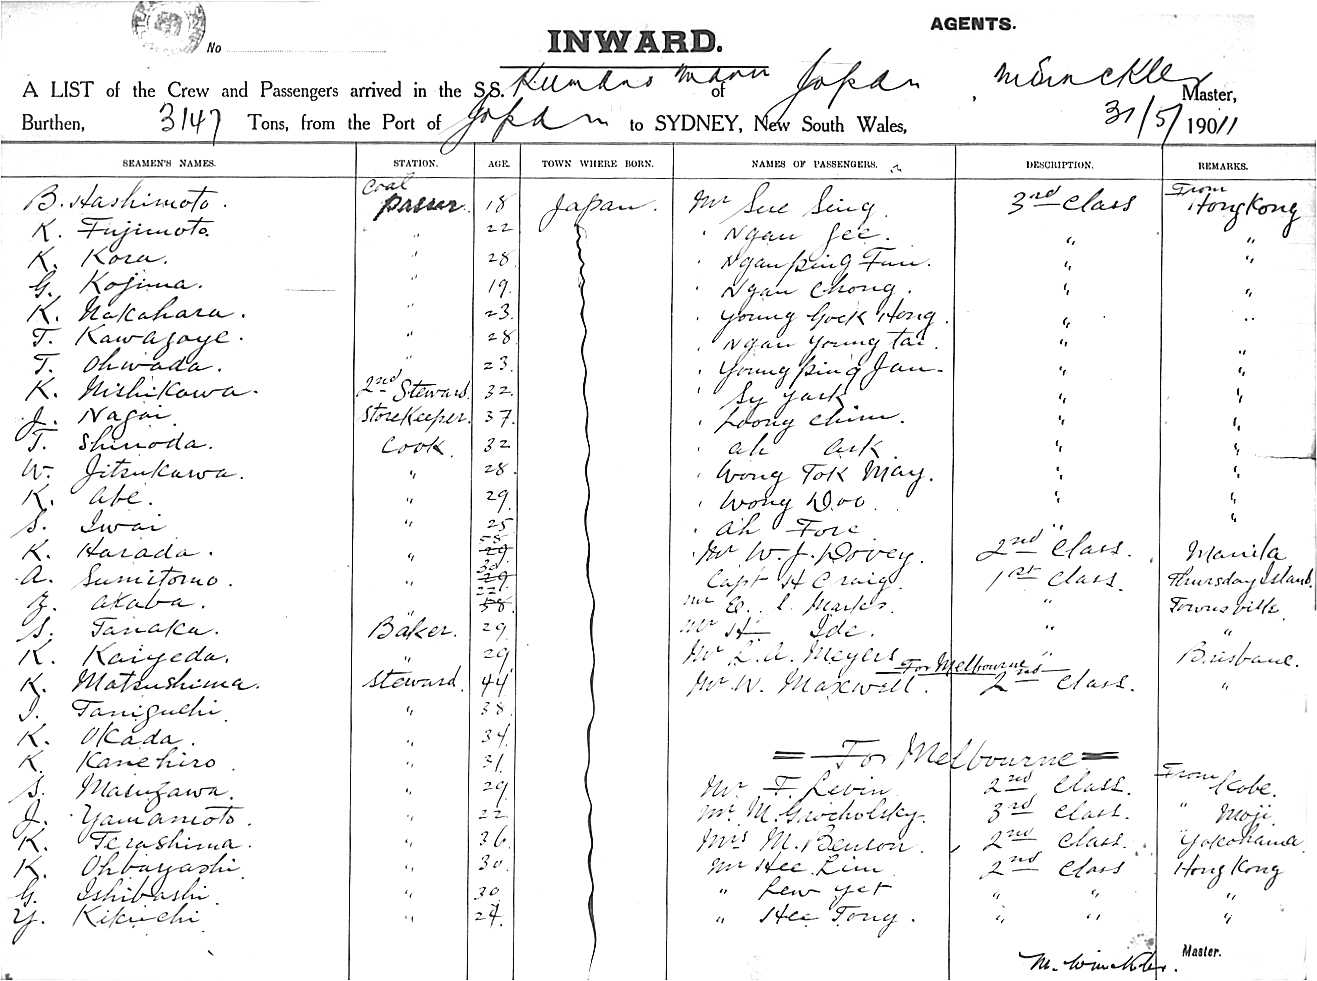 No
INWARD.
AGENTS.
A LIST of the Crew and Passengers arrived in the S.S. Kumano Maru of Japan, M Winckler Master,
Burthen, 3147 Tons, from the Port of Japan to SYDNEY, New South Wales, 31/5/1911
SEAMEN'S NAMES. STATION. AGE. TOWN WHERE BORN. NAMES OF PASSENGERS. DESCRIPTION. REMARKS.
B. Hashimoto. Coal passer 18 Japan. Mr Sue Sing. 3rd Class From Hong Kong
K. Fujimoto. " 22 " Ngan Gee. " "
K. Kora. " 28 " Ngan Ping Fun. " "
G. Kojima. " 19 " Ngan Chong. " "
K. Nakahara. " 23 " Young Gock Hong. " "
T. Kawagoye. " 28 " Ngan Young Tai.
T. Ohwada. " 23 " Young Ping Jan. " "
K. Nishikawa. 2nd Steward 32 " Sy Yark " "
J. Nagai Storekeeper. 37 " Loong Chim. " "
T. Shinoda. Cook. 32 " Ah Ark " "
W. Jitsukawa. " 28 " Wong Tok May. " "
K. Abe. " 29 " Wong Doo " "
S. Iwai " 25 " Ah Fore " "
K. Harada. " 58 29 Mr W. J. Dovey. 2nd Class. Manila
A. Sumitomo. " 30 29 Capt H Craig. 1st Class. Thursday Island.
Z. Akaba. " 22 58 Mr E. L. Marks. " Townsville
S. Tanaka. Baker. 29 Mr H Ide. " "
K. Kaiyeda. " 29 Mr L. A. Meyers " Brisbane.
For Melbourne
K. Matsushima. Steward. 44 Mr W. Maxwell. 2nd Class. "
I. Taniguchi " 38
K. Okada. " 34
K. Kanehiro. " 31 = For Melbourne =
S. Masuzawa. " 29 Mr F. Levin. 2nd Class. From Kobe.
J. Yamamoto. " 22 Mr M. Grocholsky. 3rd Class. " Moji
K. Terashima. " 36 Mrs M. Benson. 2nd Class. Yokohama
K. Ohbayashi " 30 Mr Hee Lim. 2nd Class Hong Kong
G. Ishibashi. " 30 " Lew Yet " " "
Y. Kikuchi " 24 " Hee Tong. " " "
M. Winckler. Master.